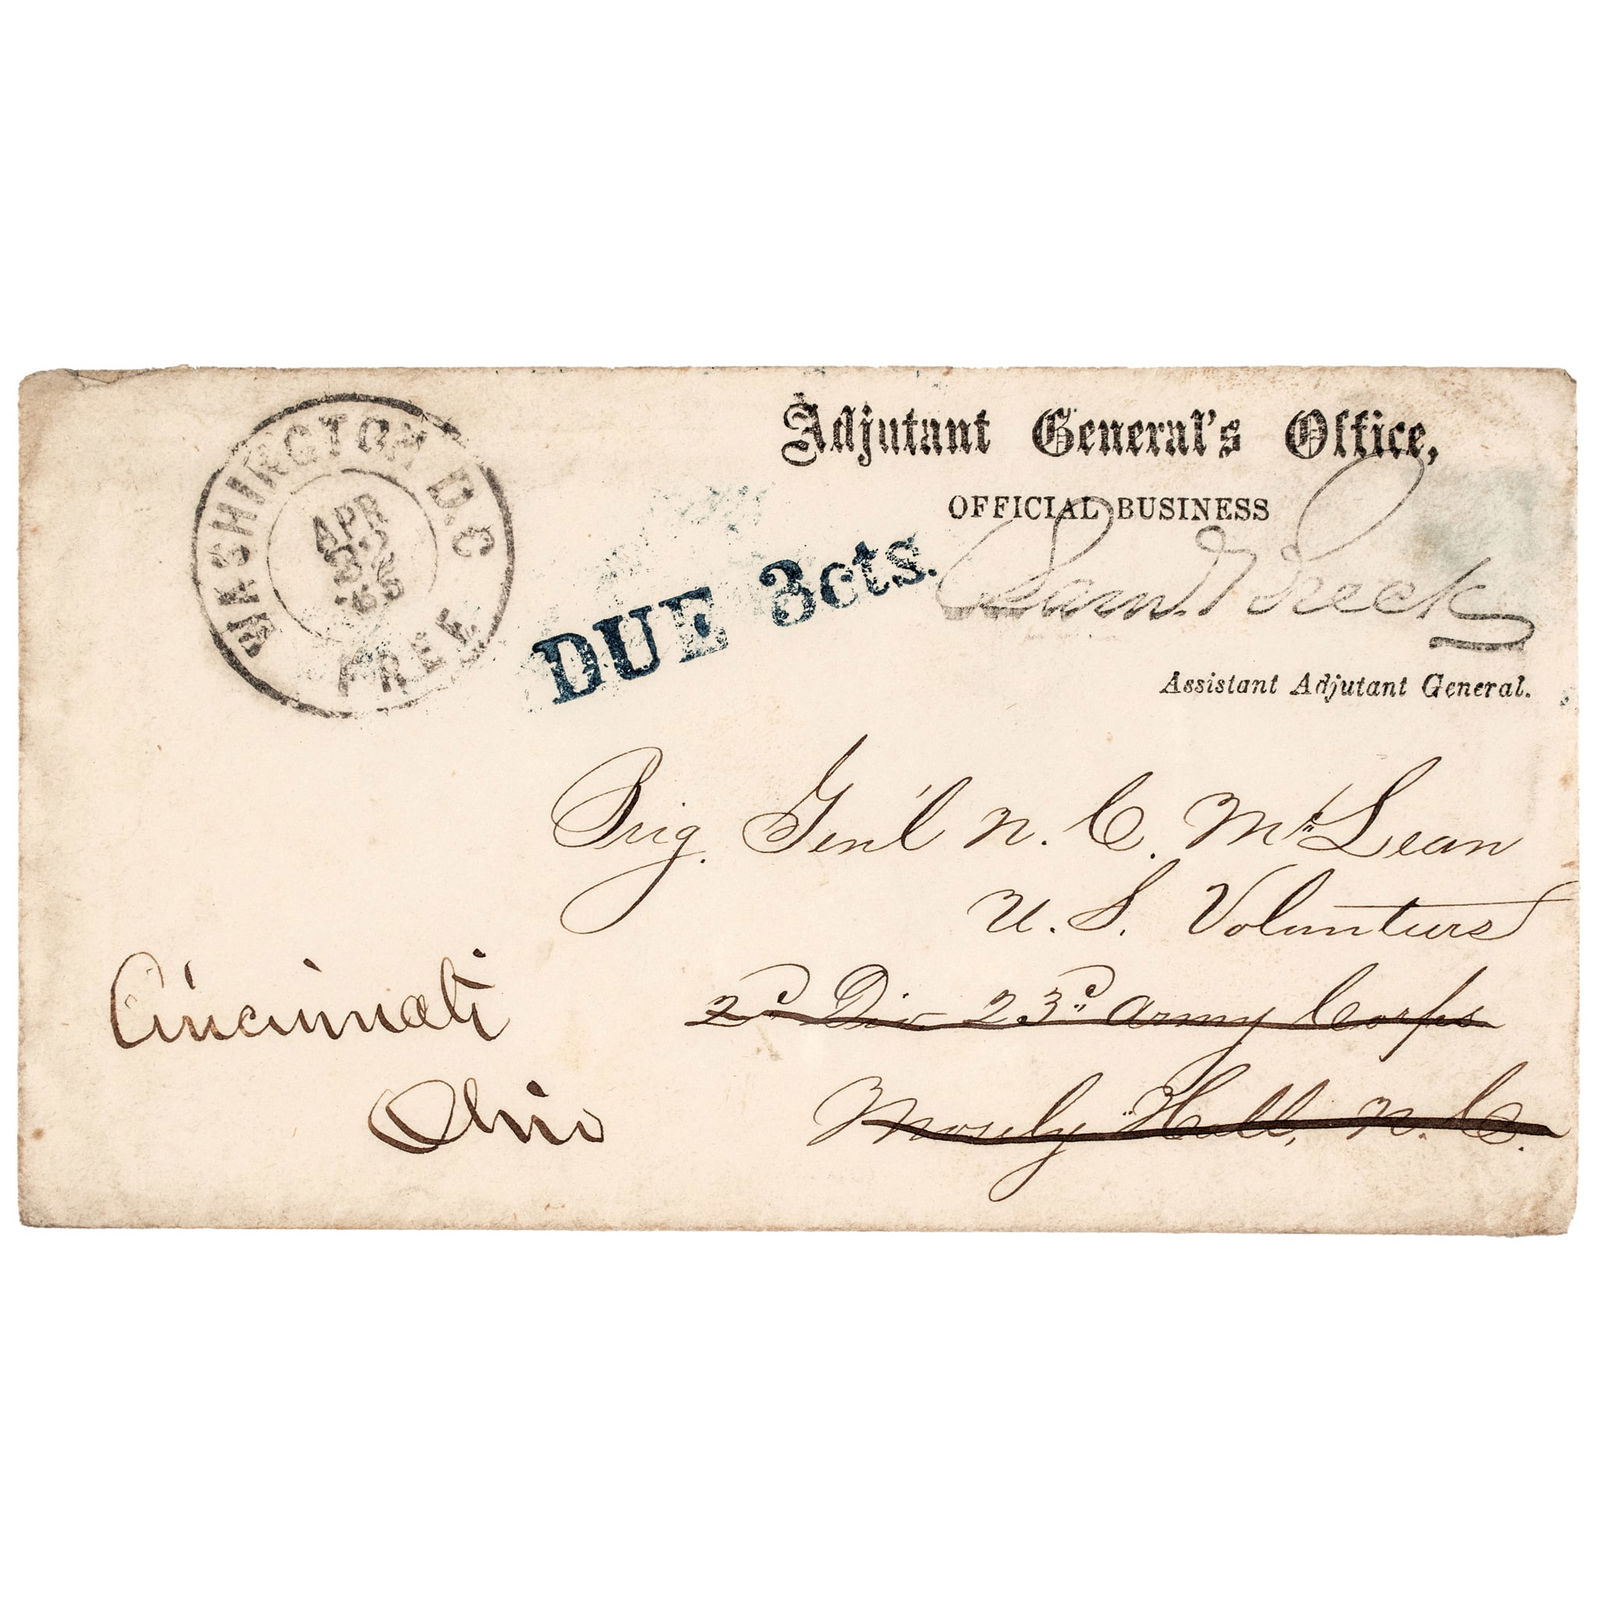 WASHINGTON D.C.
APR
'65
FREE
DUE 3cts.
Adjutant General's Office,
OFFICIAL BUSINESS
Sam. Breck
Assistant Adjutant General.
Brig. Gen'l N. C. McLean
U. S. Volunteers
2d Div 23d Army Corps
Mosely Hall, N. C.
Cincinnati
Ohio